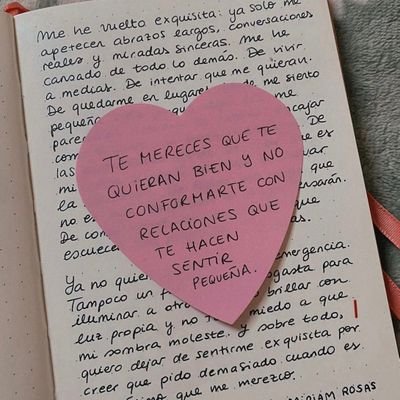 Me he vuelto exquisita: ya solo me
apetecen abrazos largos, conversaciones
reales y miradas sinceras. Me he
cansado de todo lo demás. De vivir
a medias. De intentar que me quieran.
De quedarme en lugares me siento
pequeña me
encajar
las es
mi var
la
no es
De
escuece as.
TE MERECES QUE TE
QUIERAN BIEN Y NO
CONFORMARTE CON
RELACIONES QUE
TE HACEN
SENTIR
PEQUEÑA.
Ya no quie mergencia.
Tampoco un ogasta para
iluminar a otro brillar con
luz propia y no miedo a que
mi sombra moleste. Y sobre todo,
quiero dejar de sentirme exquisita por
creer que pido demasiado cuando es
que me merezco.
MIRIAM ROSAS